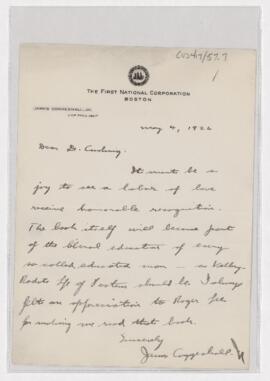 CUS417/57.7
1
THE FIRST NATIONAL CORPORATION
BOSTON
JAMES COGGESHALL, JR.
VICE PRESIDENT
May 4, 1926
Dear Dr. Cushing.
It must be a
joy to see a labor of love
receive honorable recognition.
The book itself will become part
of the liberal education of every
so called educated man — as Vallery-
Radot's Life of Pasteur should be. I always
felt an appreciation to Roger Lee
for making me read that book.
Sincerely
James Coggeshall Jr